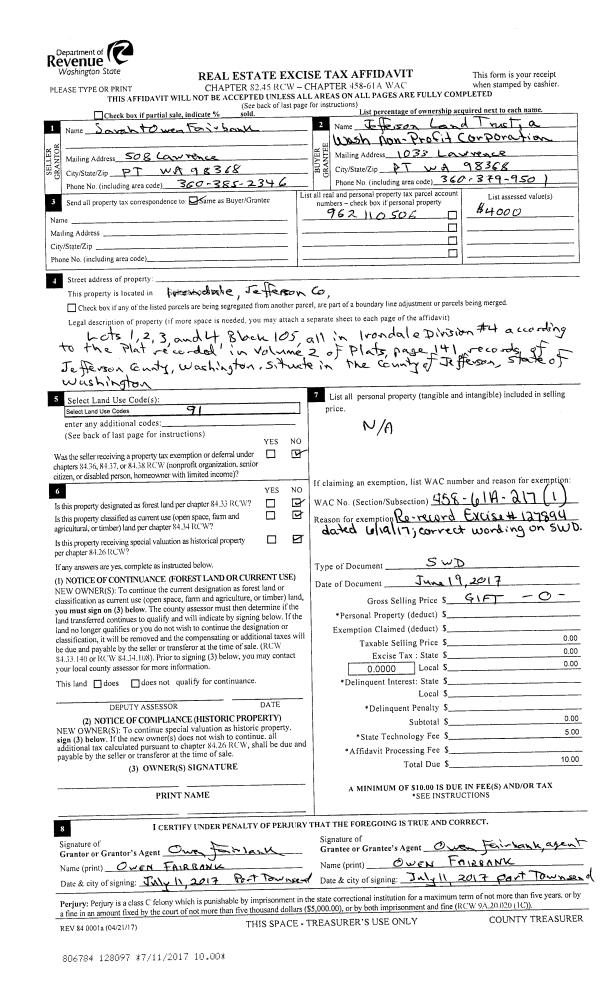 Department of
Revenue
Washington State
PLEASE TYPE OR PRINT
REAL ESTATE EXCISE TAX AFFIDAVIT
CHAPTER 82.45 RCW – CHAPTER 458-61A WAC
This form is your receipt
when stamped by cashier.
THIS AFFIDAVIT WILL NOT BE ACCEPTED UNLESS ALL AREAS ON ALL PAGES ARE FULLY COMPLETED
(See back of last page for instructions)
Check box if partial sale, indicate % sold.
List percentage of ownership acquired next to each name.
1 Name Sarah + Owen Fairbank
SELLER GRANTOR
Mailing Address 508 Lawrence
City/State/Zip PT WA 98368
Phone No. (including area code) 360-385-2346
2 Name Jefferson Land Trust, a
Wash non-Profit Corporation
BUYER GRANTEE
Mailing Address 1033 Lawrence
City/State/Zip PT WA 98368
Phone No. (including area code) 360-379-9501
3 Send all property tax correspondence to: Same as Buyer/Grantee
Name
Mailing Address
City/State/Zip
Phone No. (including area code)
List all real and personal property tax parcel account
numbers – check box if personal property
962 110 506
List assessed value(s)
$4000
4 Street address of property:
This property is located in Irondale, Jefferson Co,
Check box if any of the listed parcels are being segregated from another parcel, are part of a boundary line adjustment or parcels being merged.
Legal description of property (if more space is needed, you may attach a separate sheet to each page of the affidavit)
Lots 1, 2, 3, and 4 Block 105, all in Irondale Division #4 according
to the Plat recorded in Volume 2 of Plats, page 141, records of
Jefferson County, Washington. Situate in the County of Jefferson, State of
Washington
5 Select Land Use Code(s):
Select Land Use Codes 91
enter any additional codes:
(See back of last page for instructions)
YES NO
Was the seller receiving a property tax exemption or deferral under
chapters 84.36, 84.37, or 84.38 RCW (nonprofit organization, senior
citizen, or disabled person, homeowner with limited income)?
6
YES NO
Is this property designated as forest land per chapter 84.33 RCW?
Is this property classified as current use (open space, farm and
agricultural, or timber) land per chapter 84.34 RCW?
Is this property receiving special valuation as historical property
per chapter 84.26 RCW?
If any answers are yes, complete as instructed below.
(1) NOTICE OF CONTINUANCE (FOREST LAND OR CURRENT USE)
NEW OWNER(S): To continue the current designation as forest land or
classification as current use (open space, farm and agriculture, or timber) land,
you must sign on (3) below. The county assessor must then determine if the
land transferred continues to qualify and will indicate by signing below. If the
land no longer qualifies or you do not wish to continue the designation or
classification, it will be removed and the compensating or additional taxes will
be due and payable by the seller or transferor at the time of sale. (RCW
84.33.140 or RCW 84.34.108). Prior to signing (3) below, you may contact
your local county assessor for more information.
This land does does not qualify for continuance.
DEPUTY ASSESSOR DATE
(2) NOTICE OF COMPLIANCE (HISTORIC PROPERTY)
NEW OWNER(S): To continue special valuation as historic property,
sign (3) below. If the new owner(s) does not wish to continue, all
additional tax calculated pursuant to chapter 84.26 RCW, shall be due and
payable by the seller or transferor at the time of sale.
(3) OWNER(S) SIGNATURE
PRINT NAME
7 List all personal property (tangible and intangible) included in selling
price.
N/A
If claiming an exemption, list WAC number and reason for exemption:
WAC No. (Section/Subsection) 458-61A-217(1)
Reason for exemption Re-record Excise # 127894
dated 6/19/17; correct wording on SWD.
Type of Document SWD
Date of Document June 19, 2017
Gross Selling Price $ GIFT -0-
*Personal Property (deduct) $
Exemption Claimed (deduct) $
Taxable Selling Price $ 0.00
Excise Tax : State $ 0.00
0.0000 Local $ 0.00
*Delinquent Interest: State $
Local $
*Delinquent Penalty $
Subtotal $ 0.00
*State Technology Fee $ 5.00
*Affidavit Processing Fee $
Total Due $ 10.00
A MINIMUM OF $10.00 IS DUE IN FEE(S) AND/OR TAX
*SEE INSTRUCTIONS
8 I CERTIFY UNDER PENALTY OF PERJURY THAT THE FOREGOING IS TRUE AND CORRECT.
Signature of
Grantor or Grantor's Agent Owen Fairbank
Name (print) OWEN FAIRBANK
Date & city of signing: July 11, 2017 Port Townsend
Signature of
Grantee or Grantee's Agent Owen Fairbank, agent
Name (print) OWEN FAIRBANK
Date & city of signing: July 11, 2017 Port Townsend
Perjury: Perjury is a class C felony which is punishable by imprisonment in the state correctional institution for a maximum term of not more than five years, or by
a fine in an amount fixed by the court of not more than five thousand dollars ($5,000.00), or by both imprisonment and fine (RCW 9A.20.020 (1C)).
REV 84 0001a (04/21/17)
THIS SPACE - TREASURER'S USE ONLY
COUNTY TREASURER
806784 128097 *7/11/2017 10.00*